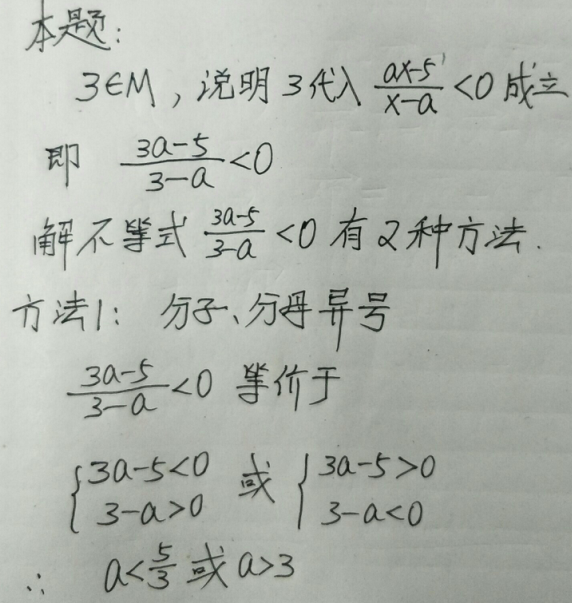 本题:
3∈M, 说明3代入 (ax-5)/(x-a) <0 成立
即 (3a-5)/(3-a) <0
解不等式 (3a-5)/(3-a) <0 有2种方法.
方法1: 分子、分母异号
(3a-5)/(3-a) <0 等价于
{3a-5<0 或 {3a-5>0
3-a>0 3-a<0
∴ a<5/3 或 a>3